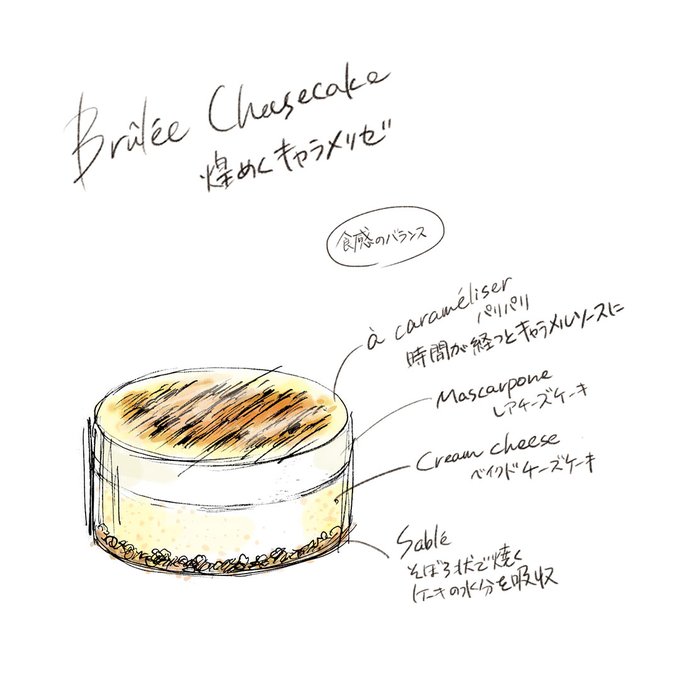 Brûlée Cheesecake
煌めくキャラメリゼ
食感のバランス
à caraméliser
パリパリ
時間が経つとキャラメルソースに
Mascarpone
レアチーズケーキ
Cream cheese
ベイクドチーズケーキ
Sablé
そぼろ状で焼く
ケーキの水分を吸収